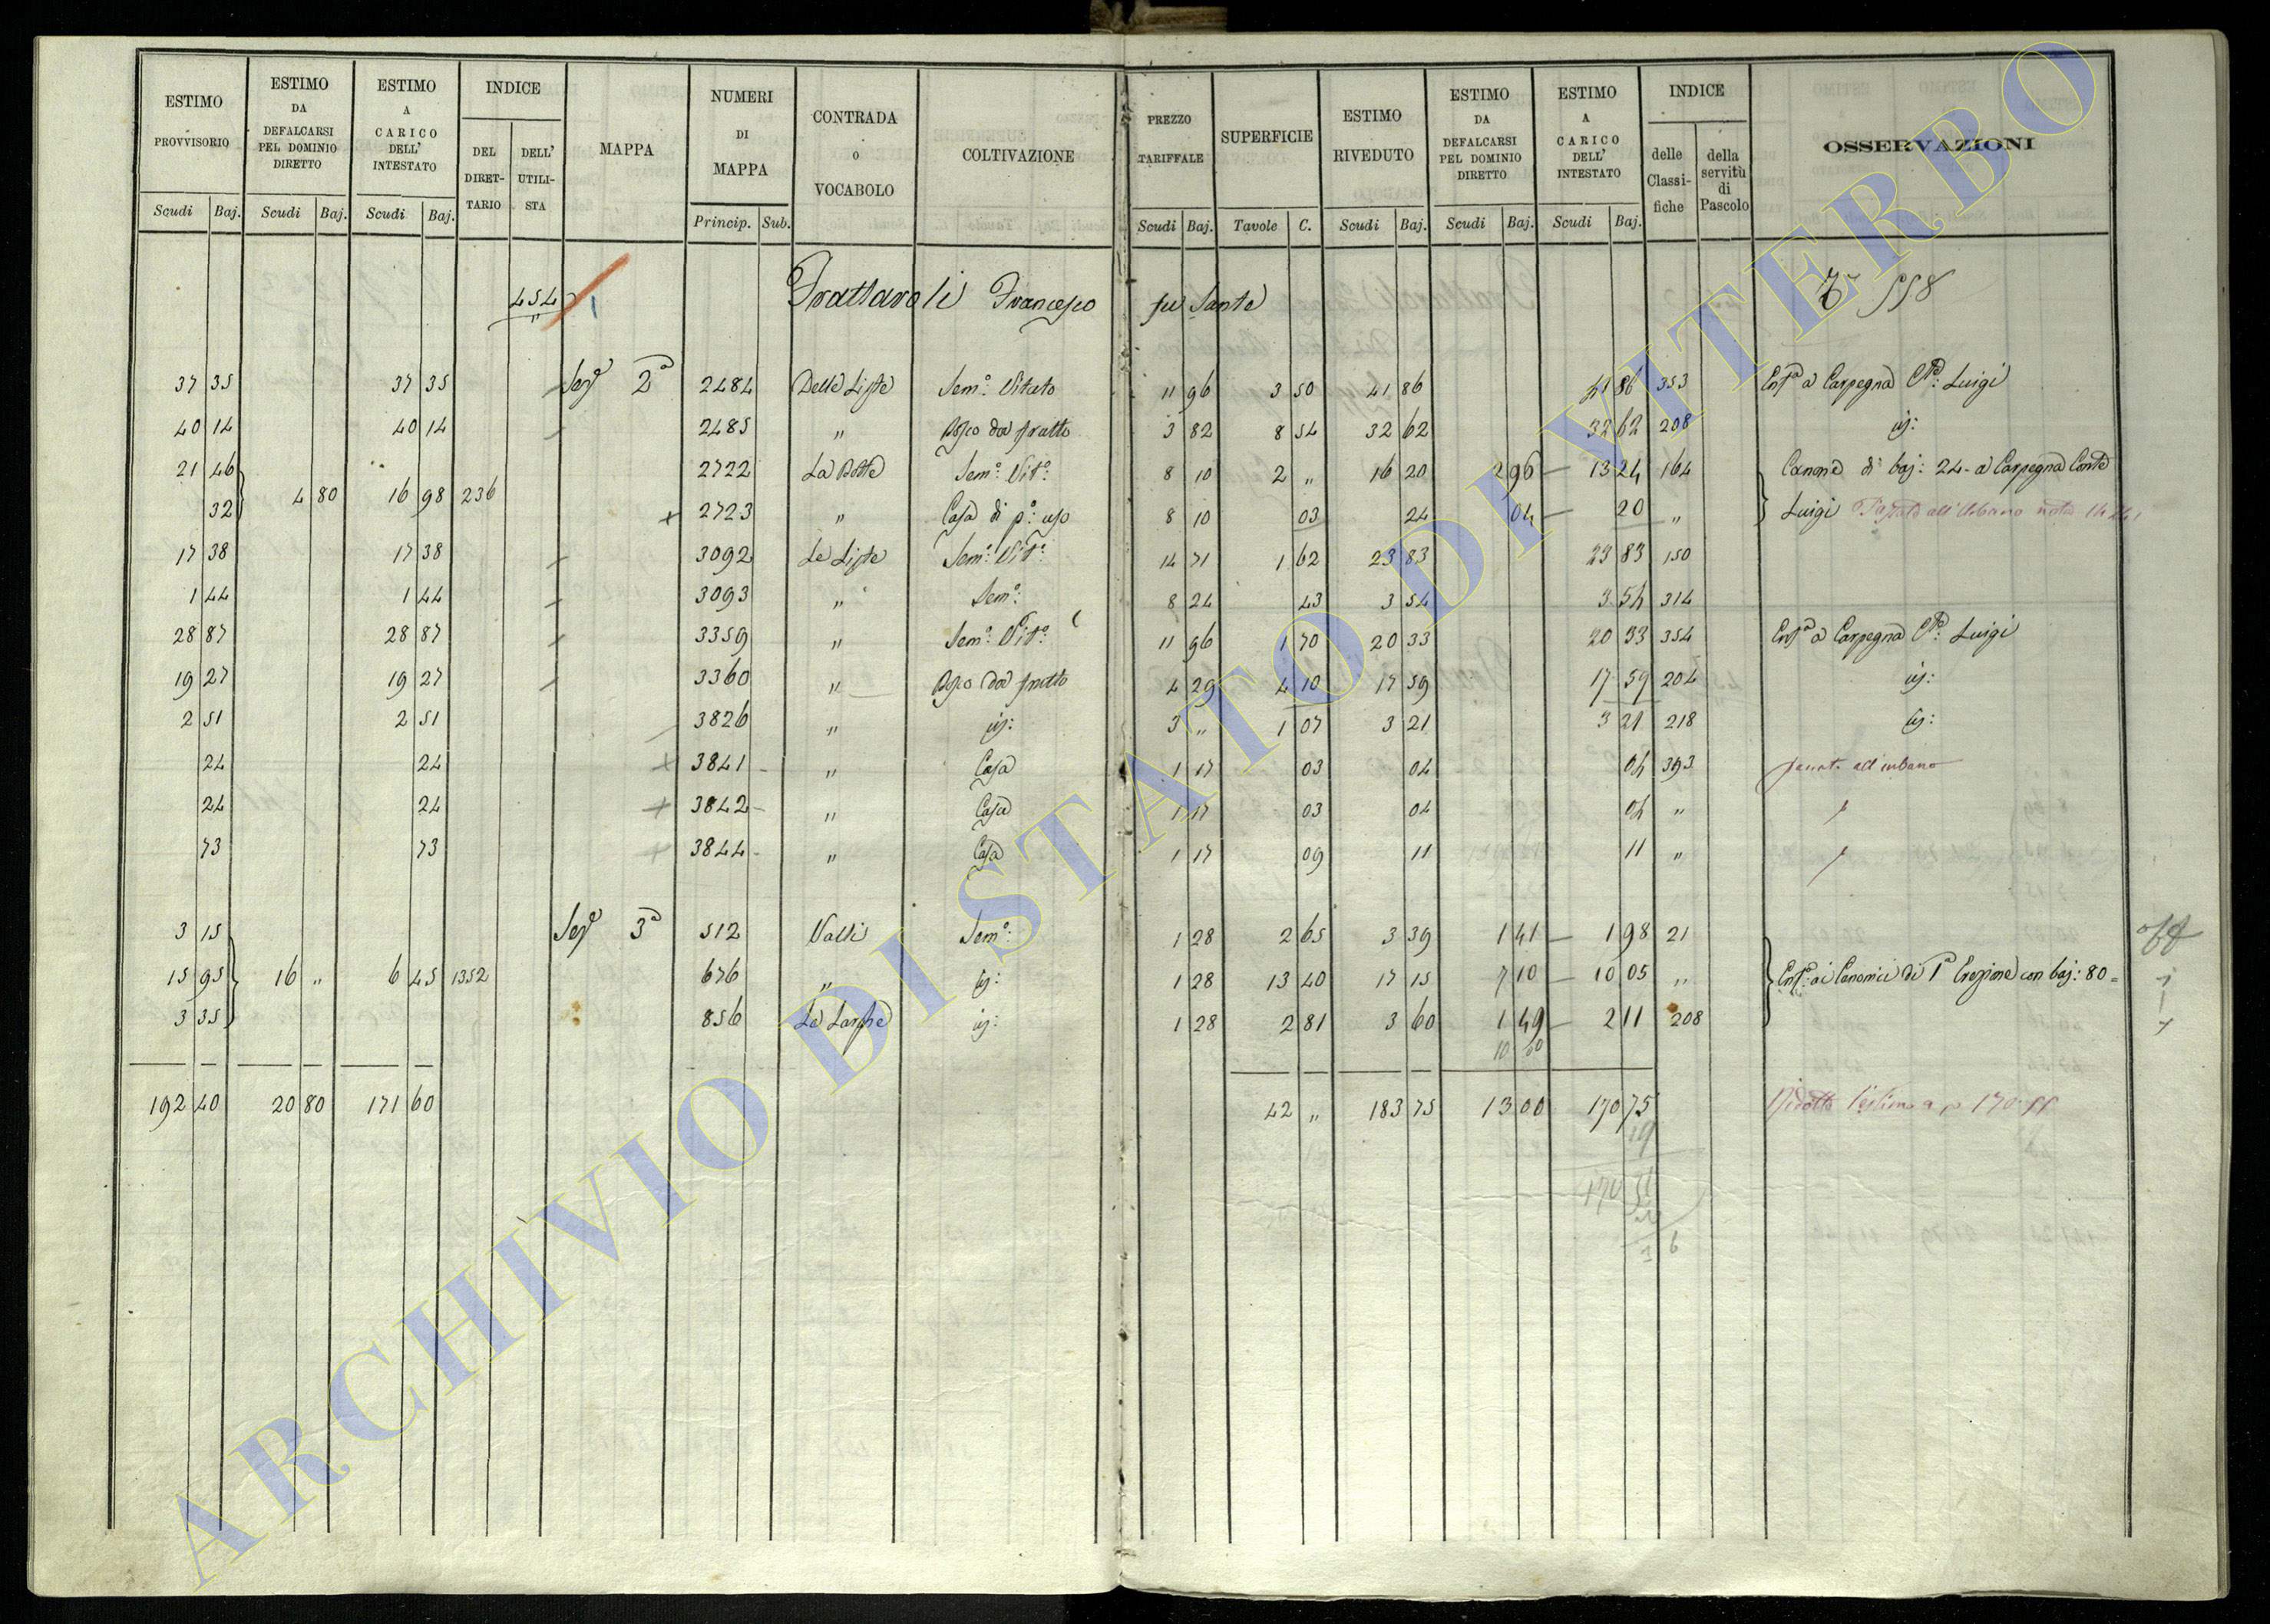 ESTIMO PROVVISORIO | ESTIMO DA DEFALCARSI PEL DOMINIO DIRETTO | ESTIMO A CARICO DELL' INTESTATO | INDICE | MAPPA | NUMERI DI MAPPA | CONTRADA O VOCABOLO | COLTIVAZIONE | PREZZO TARIFFALE | SUPERFICIE | ESTIMO RIVEDUTO | ESTIMO DA DEFALCARSI PEL DOMINIO DIRETTO | ESTIMO A CARICO DELL' INTESTATO | INDICE | OSSERVAZIONI
DEL DIRET-TARIO | DELL' UTILI-STA | delle Classi-fiche | della servitù di Pascolo
Scudi Baj. | Scudi Baj. | Scudi Baj. | Princip. Sub. | Scudi Baj. | Tavole C. | Scudi Baj. | Scudi Baj. | Scudi Baj.
454 | Frattaroli Francesco fu Sante | 558
37 35 | 37 35 | Sez.e 2a | 2484 | Delle Liste | Sem.o Vitato | 11 96 | 3 50 | 41 86 | 41 86 | 353 | Enf.a a Carpegna Cte: Luigi
40 14 | 40 14 | 2485 | " | Bosco da frutto | 3 82 | 8 54 | 32 62 | 32 62 | 208 | id:
21 46 | 4 80 | 16 98 | 236 | 2722 | La Botte | Sem.o Vit.o | 8 10 | 2 " | 16 20 | 2 96 | 13 24 | 164 | Canone di baj: 24 a Carpegna Conte
32 | 2723 | " | Casa di p.o uso | 8 10 | 03 | 24 | 04 | 20 | " | Luigi Passato all'Urbano nota
17 38 | 17 38 | 3092 | Le Liste | Sem.o Vit.o | 14 71 | 1 62 | 23 83 | 23 83 | 150
1 44 | 1 44 | 3093 | " | Sem.o | 8 24 | 43 | 3 54 | 3 54 | 314
28 87 | 28 87 | 3359 | " | Sem.o Vit.o | 11 96 | 1 70 | 20 33 | 20 33 | 354 | Enf.a a Carpegna Cte: Luigi
19 27 | 19 27 | 3360 | " | Bosco da frutto | 4 29 | 4 10 | 17 59 | 17 59 | 204 | id:
2 51 | 2 51 | 3826 | " | id: | 3 " | 1 07 | 3 21 | 3 21 | 218 | id:
24 | 24 | 3841 | " | Casa | 1 17 | 03 | 04 | 04 | 393 | passat. all'urbano
24 | 24 | 3842 | " | Casa | 1 17 | 03 | 04 | 04 | "
73 | 73 | 3844 | " | Casa | 1 17 | 09 | 11 | 11 | "
3 15 | Sez.e 3a | 512 | Valli | Sem.o | 1 28 | 2 65 | 3 39 | 1 41 | 1 98 | 21
15 95 | 16 " | 6 45 | 1352 | 676 | " | id: | 1 28 | 13 40 | 17 15 | 7 10 | 10 05 | " | Enf.a ai Canonici di 1a Erezione con baj: 80
3 35 | 856 | Le Larghe | id: | 1 28 | 2 81 | 3 60 | 1 49 | 2 11 | 208
10 00
192 40 | 20 80 | 171 60 | 42 " | 183 75 | 13 00 | 170 75 | Ridotto l'estimo a 170.55
ARCHIVIO DI STATO DI VITERBO